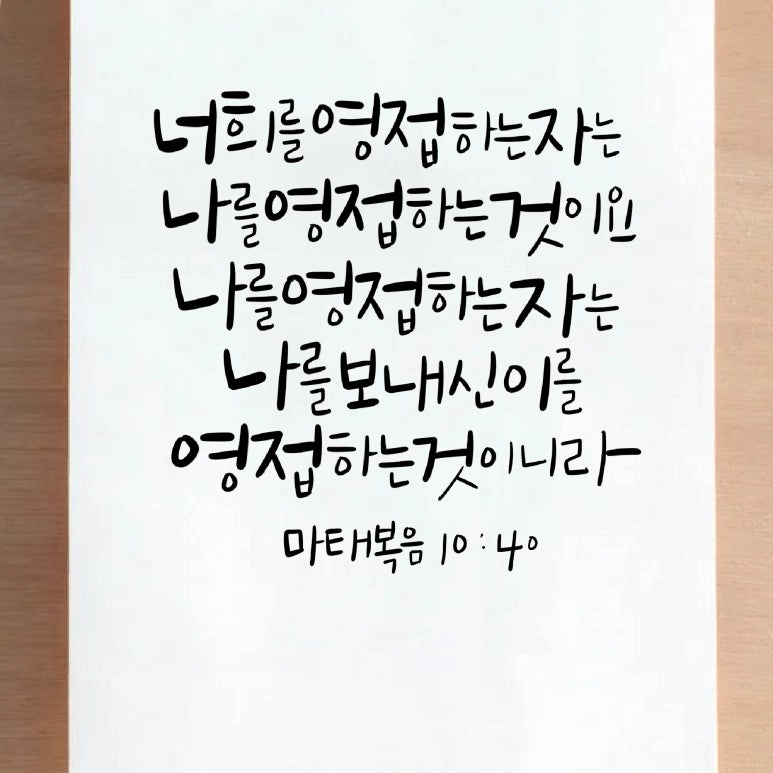 너희를 영접하는 자는
나를 영접하는 것이요
나를 영접하는 자는
나를 보내신 이를
영접하는 것이니라
마태복음 10:40